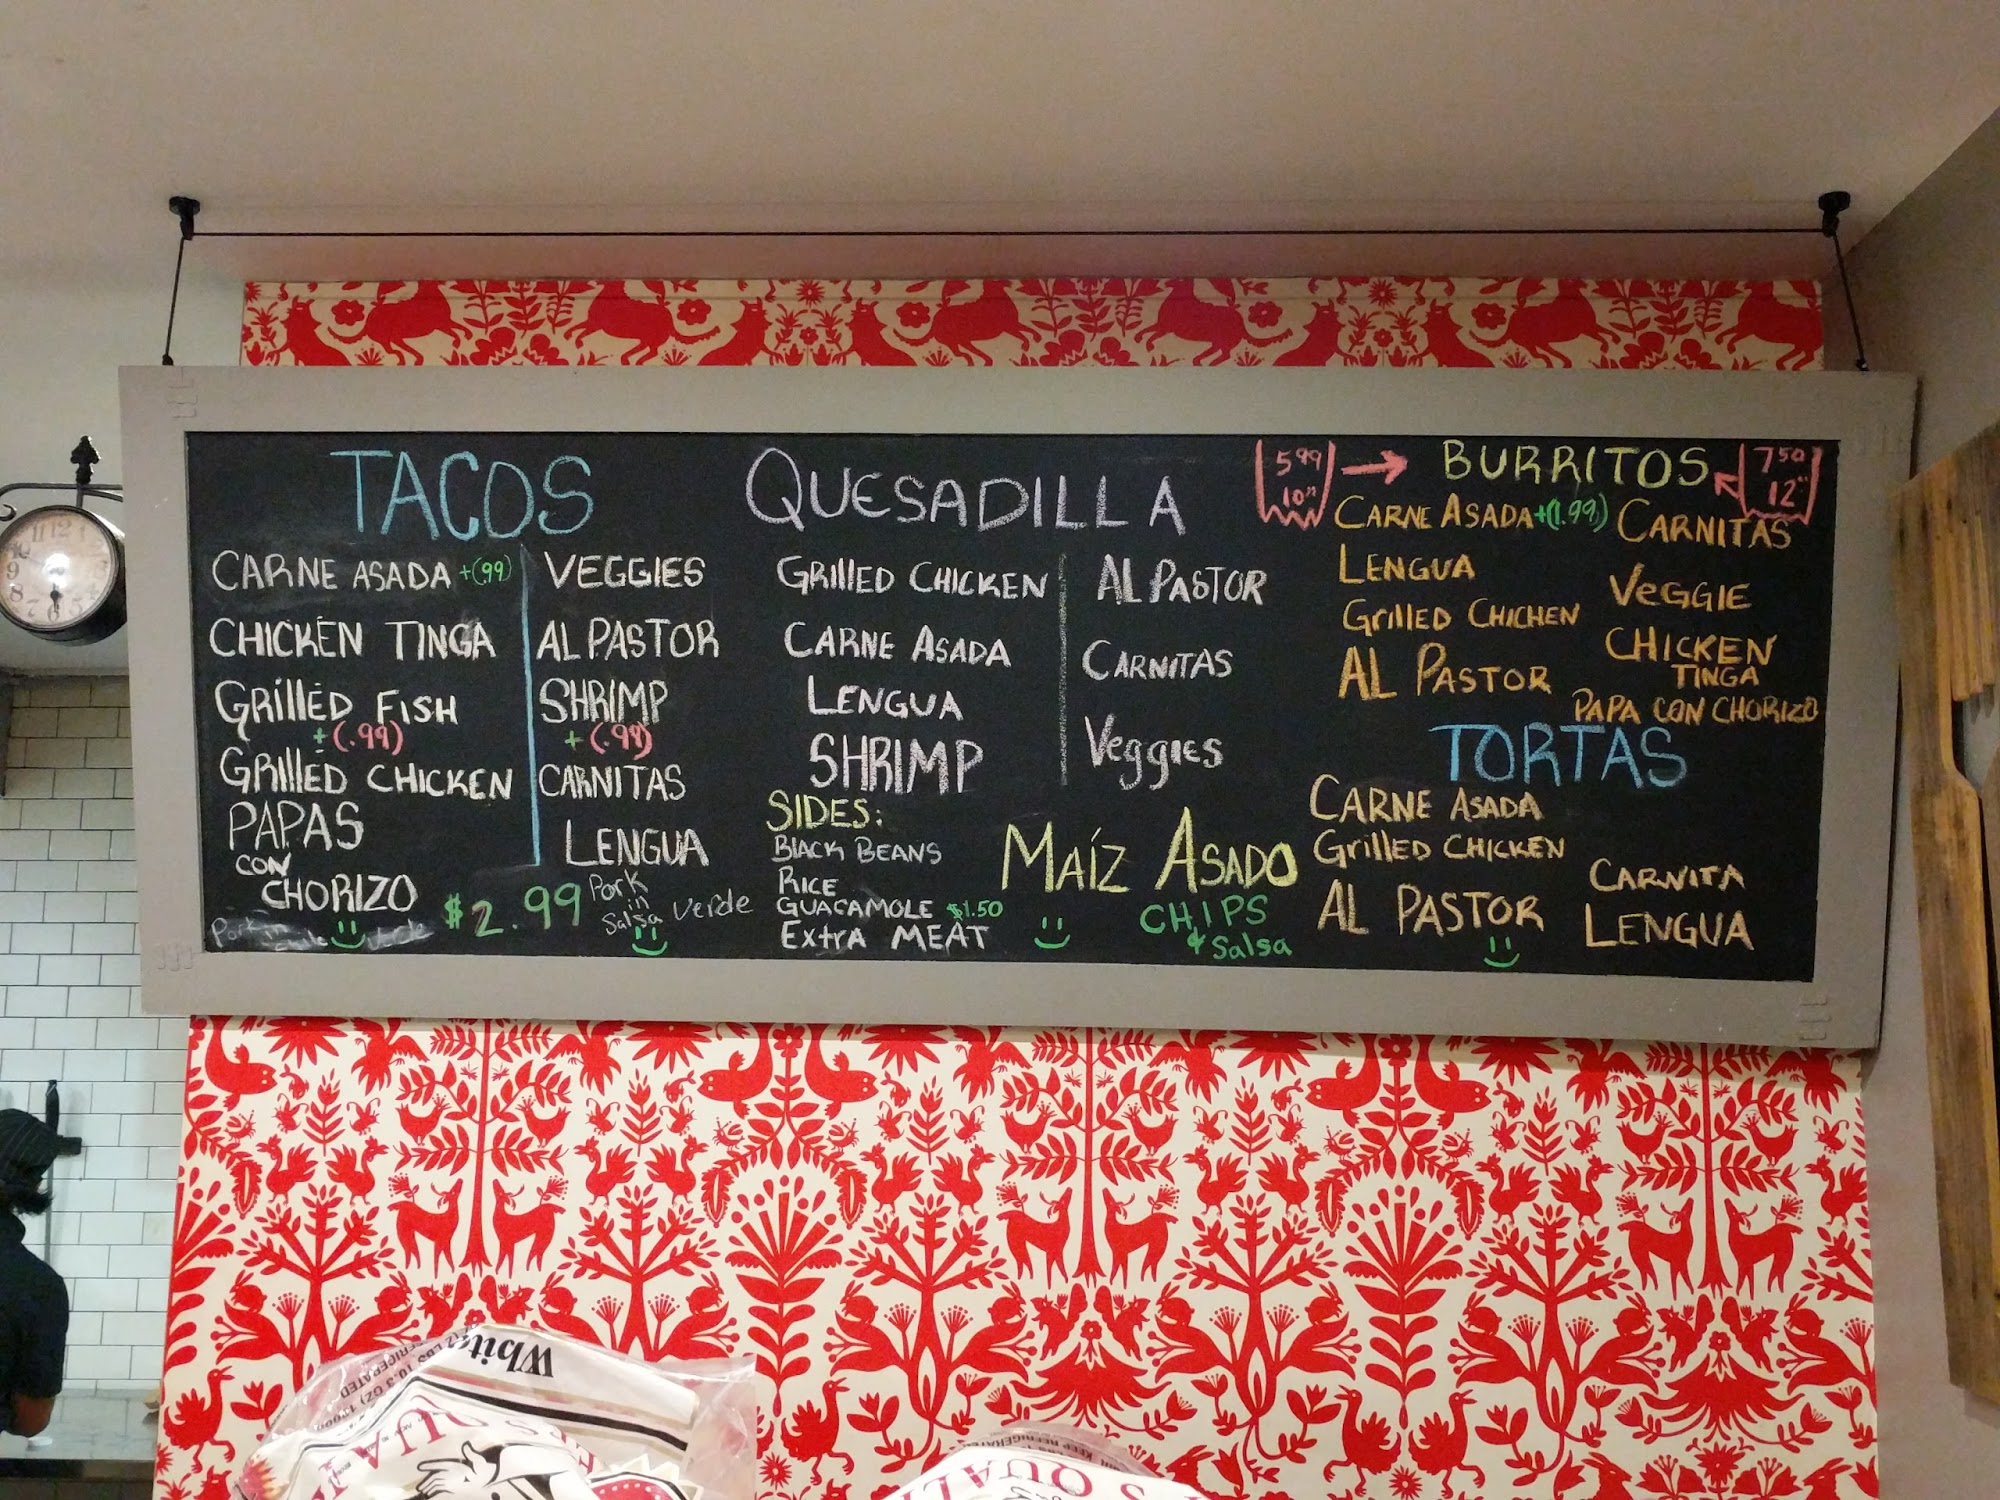 TACOS
CARNE ASADA +(.99)
CHICKEN TINGA
GRILLED FISH
+(.99)
GRILLED CHICKEN
PAPAS
CON
CHORIZO
Pork in
Verde
VEGGIES
AL PASTOR
SHRIMP
+(.99)
CARNITAS
LENGUA
$2.99
Pork
in
Salsa Verde
QUESADILLA
GRILLED CHICKEN
CARNE ASADA
LENGUA
SHRIMP
AL PASTOR
CARNITAS
Veggies
SIDES:
BLACK BEANS
RICE
GUACAMOLE $1.50
EXTRA MEAT
MAÍZ ASADO
CHIPS
& Salsa
5.99
10"
BURRITOS
7.50
12"
CARNE ASADA +(1.99)
LENGUA
GRILLED CHICHEN
AL PASTOR
CARNITAS
VEGGIE
CHICKEN
TINGA
PAPA CON CHORIZO
TORTAS
CARNE ASADA
GRILLED CHICKEN
AL PASTOR
CARNITA
LENGUA
White